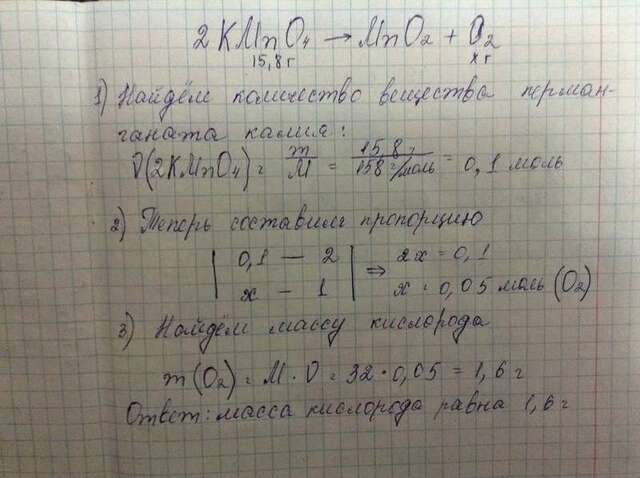 2 KMnO₄ → MnO₂ + O₂
15,8 г х г
1) Найдём количество вещества перман-
ганата калия:
ν(2KMnO₄) = m/M = 15,8 г/158 г/моль = 0,1 моль
2) Теперь составим пропорцию
| 0,1 — 2 | ⇒ 2х = 0,1
| х — 1 | х = 0,05 моль (O₂)
3) Найдём массу кислорода
m(O₂) = M · ν = 32 · 0,05 = 1,6 г
Ответ: масса кислорода равна 1,6 г